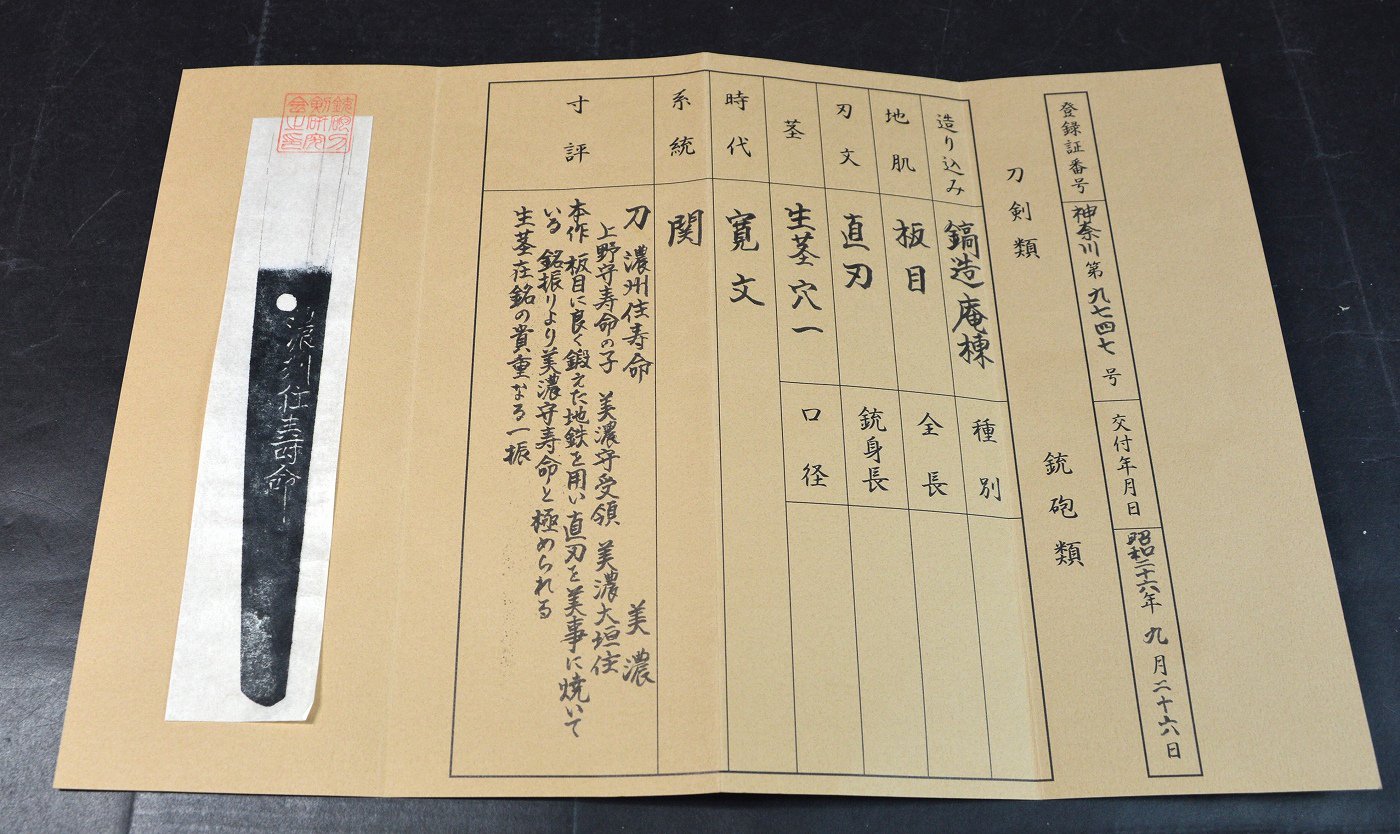 登録証番号 神奈川 第九七四七号 交付年月日 昭和二十六年九月二十六日
刀剣類 銃砲類
造り込み 鎬造庵棟 種別
地肌 板目 全長
刃文 直刃 銃身長
茎 生茎穴一 口径
時代 寛文
系統 関
寸評
刀 濃州住寿命 美濃
上野守寿命の子 美濃守受領 美濃大垣住
本作 板目に良く鍛えた地鉄を用い直刃を美事に焼いて
いる 銘振りより美濃守寿命と極められる
生茎在銘の貴重なる一振
銃砲刀
剣研究
会之印
濃州住寿命